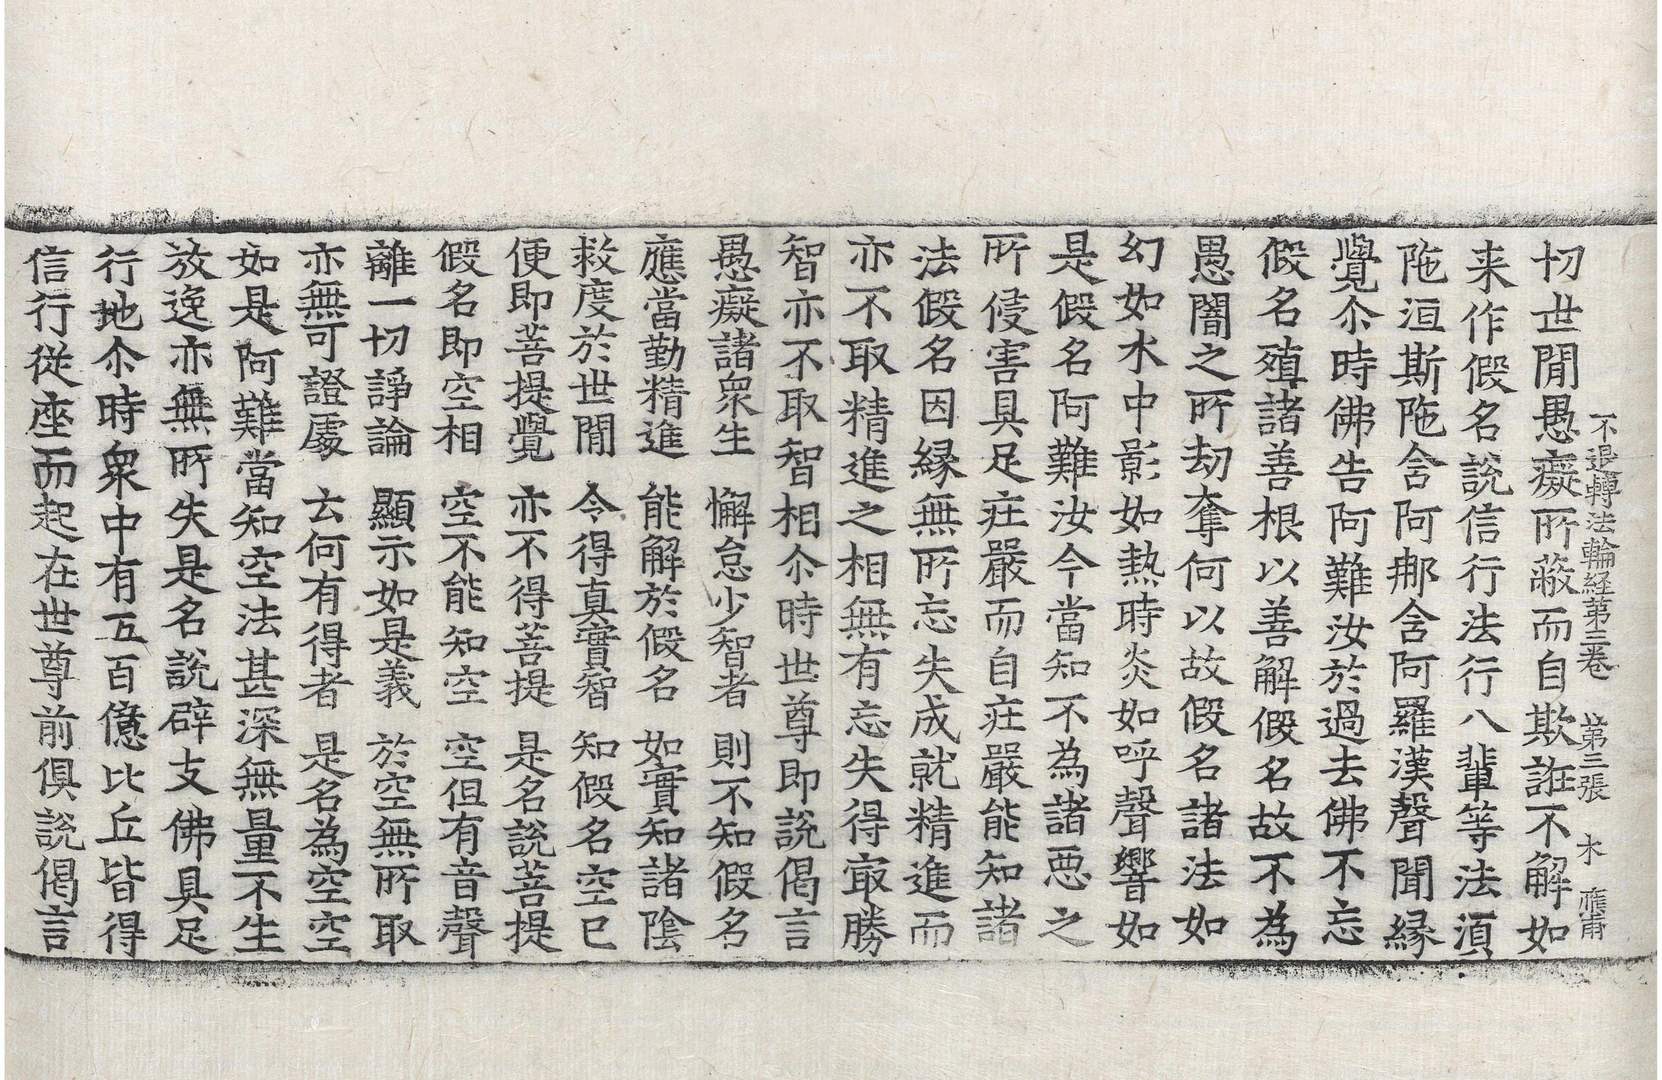 不退轉法輪経第三卷 第三張 木 應甫
切世閒愚癡所蔽而自欺誑不解如
来作假名說信行法行八輩等法湏
陁洹斯陁含阿那含阿羅漢聲聞縁
覺尒時佛告阿難汝於過去佛不忘
假名殖諸善根以善解假名故不為
愚闇之所劫奪何以故假名諸法如
幻如水中影如熱時炎如呼聲響如
是假名阿難汝今當知不為諸惡之
所侵害具足莊嚴而自莊嚴能知諸
法假名因縁無所忘失成就精進而
亦不取精進之相無有忘失得冣勝
智亦不取智相尒時世尊即說偈言
愚癡諸衆生 懈怠少智者 則不知假名
應當勤精進 能解於假名 如實知諸陰
救度於世閒 令得真實智 知假名空已
便即菩提覺 亦不得菩提 是名說菩提
假名即空相 空不能知空 空但有音聲
離一切諍論 顯示如是義 於空無所取
亦無可證處 云何有得者 是名為空空
如是阿難當知空法甚深無量不生
放逸亦無所失是名說辟支佛具足
行地尒時衆中有五百億比丘皆得
信行從座而起在世尊前俱說偈言